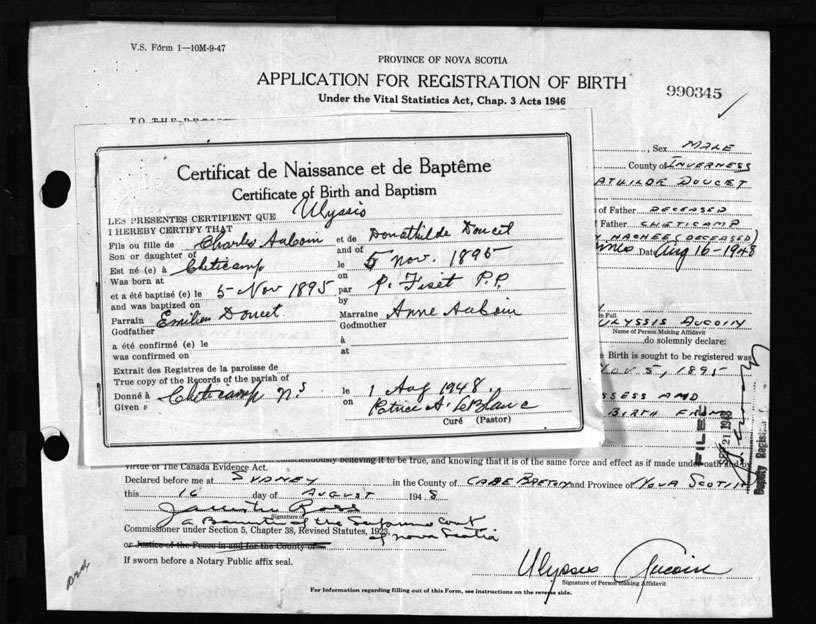 V.S. Form 1—10M-9-47
PROVINCE OF NOVA SCOTIA
APPLICATION FOR REGISTRATION OF BIRTH
990345
Under the Vital Statistics Act, Chap. 3 Acts 1946
TO THE
, Sex MALE
County of INVERNESS
ATHILDE DOUCET
of Father DECEASED
Father CHETICAMP
HACHEE (DECEASED)
Date Aug 16-1948
Certificat de Naissance et de Baptême
Certificate of Birth and Baptism
LES PRESENTES CERTIFIENT QUE Ulyssis
I HEREBY CERTIFY THAT
Fils ou fille de Charles Aucoin et de Donathilde Doucet
Son or daughter of and of
Est né (e) à Cheticamp le 5 Nov. 1895
Was born at on
et a été baptisé (e) le 5 Nov 1895 par P. Fiset P.P.
and was baptized on by
Parrain Emilien Doucet Marraine Anne Aucoin
Godfather Godmother
a été confirmé (e) le à
was confirmed on at
Extrait des Registres de la paroisse de
True copy of the Records of the parish of
Donné à Cheticamp N.S le 1 Aug 1948.
Given on Patrice A. LeBlanc
Curé (Pastor)
in Full
ULYSSIS AUCOIN
Name of Person Making Affidavit
do solemnly declare:
Birth is sought to be registered was
NOV. 5, 1895
SSESS AND
BIRTH FROM
FILED
SEP 21 1948
Deputy Regis
conscientiously believing it to be true, and knowing that it is of the same force and effect as if made under oath and by
virtue of The Canada Evidence Act.
Declared before me at SYDNEY in the County of CAPE BRETON and Province of NOVA SCOTIA
this 16 day of AUGUST 1948
Signature of
a Barrister of the Supreme Court
Commissioner under Section 5, Chapter 38, Revised Statutes, 1923,
of Nova Scotia
or Justice of the Peace in and for the County of
If sworn before a Notary Public affix seal.
Ulysses Aucoin
Signature of Person Making Affidavit
For Information regarding filling out of this Form, see instructions on the reverse side.